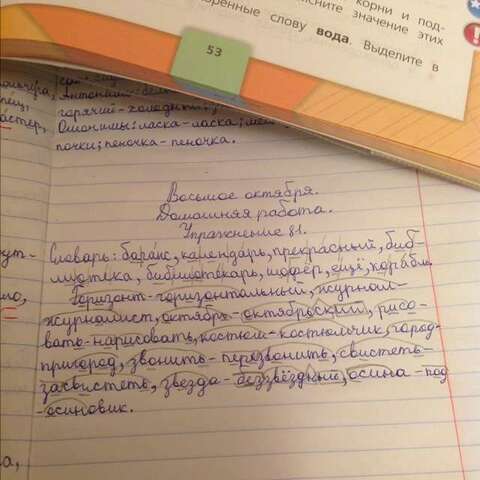 корни и под-
ясните значение этих
коренные слову вода. Выделите в
53
горячий-холодный
Омонимы: ласка-ласка;
почки; пеночка-пеночка.
Восьмое октября.
Домашняя работа.
Упражнение 81.
Словарь: баркас, календарь, прекрасный, биб-
лиотека, библиотекарь, шофёр, ещё, корабль.
Горизонт-горизонтальный, журнал-
журналист, октябрь-октябрьский, рисо-
вать-нарисовать, костюм-костюмчик, город-
пригород, звонить-перезвонить, свистеть-
засвистеть, звезда-беззвёздный, осина-под-
осиновик.